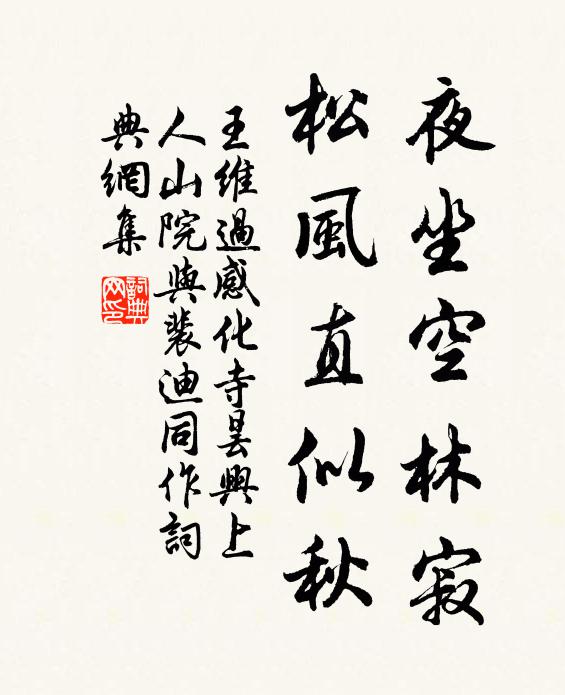 夜坐空林寂
松風直似秋
王維過感化寺曇興上
人山院與裴迪同作詞
典網集
詞典网印